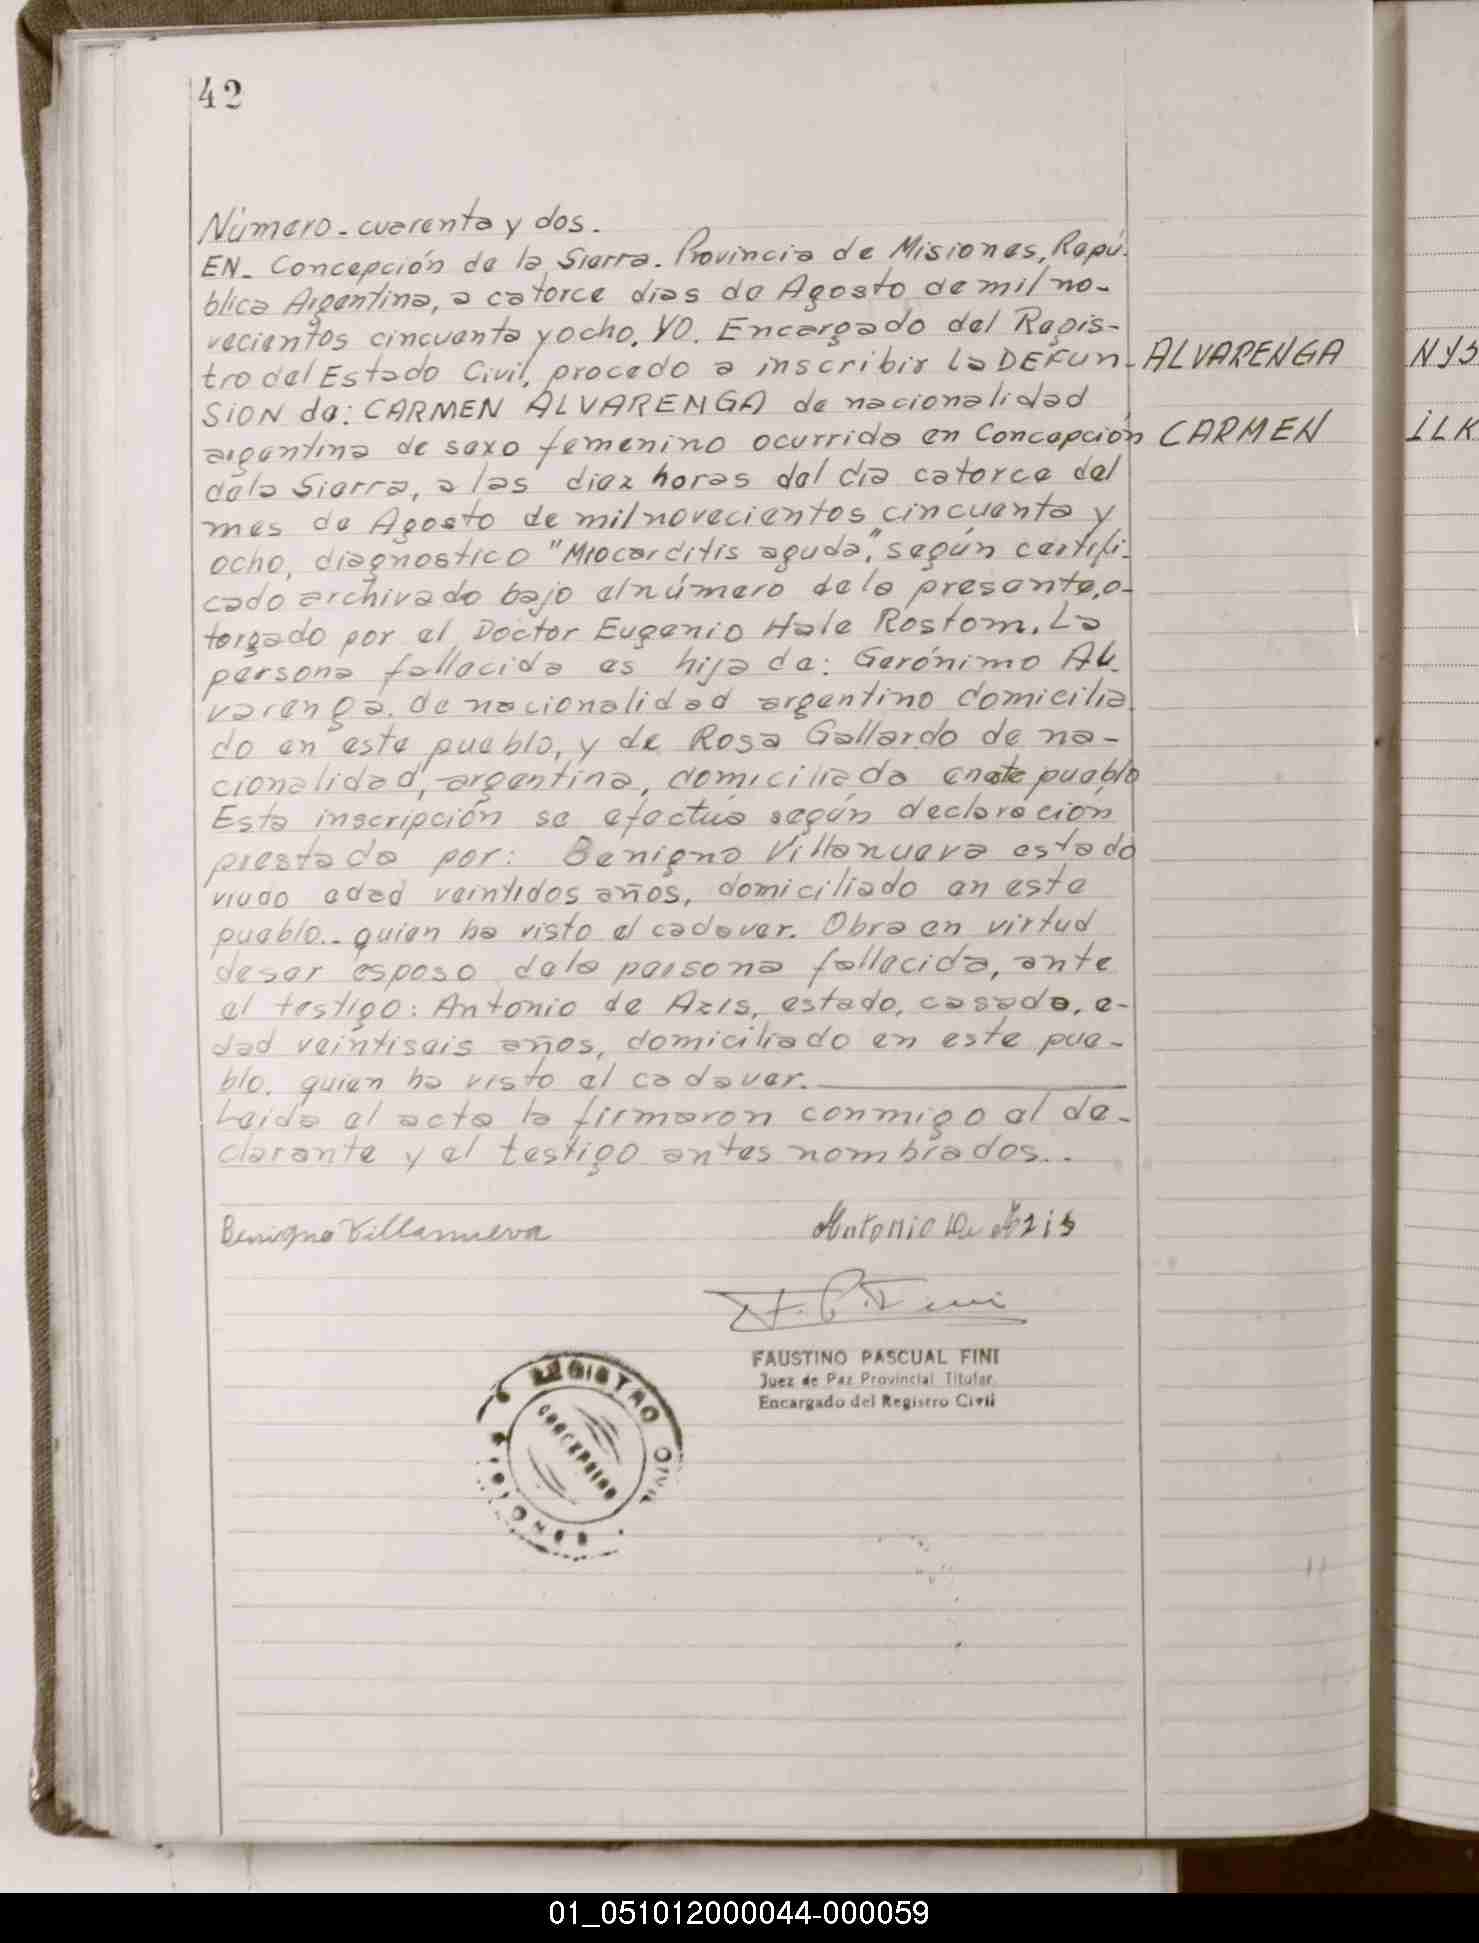 42
Número - cuarenta y dos.
EN - Concepción de la Sierra. Provincia de Misiones, Repú-
blica Argentina, a catorce dias de Agosto de mil no-
vecientos cincuenta y ocho, YO. Encargado del Regis-
tro del Estado Civil, procedo a inscribir la DEFUN-
SION de: CARMEN ALVARENGA de nacionalidad
argentina de sexo femenino ocurrida en Concepción
dela Sierra, a las diez horas del dia catorce del
mes de Agosto de mil novecientos cincuenta y
ocho, diagnostico "Miocarditis aguda", según certifi-
cado archivado bajo el número de la presente, o-
torgado por el Doctor Eugenio Hale Rostom. La
persona fallecida es hija de: Gerónimo Al-
varenga. de nacionalidad argentino domicilia
do en este pueblo, y de Rosa Gallardo de na-
cionalidad, argentina, domiciliada en este pueblo
Esta inscripción se efectúa según declaración
prestada por: Benigno Villanueva estado
viudo edad veintidos años, domiciliado en este
pueblo.. quien ha visto el cadaver. Obra en virtud
deser esposo dela persona fallecida, ante
el testigo: Antonio de Azis, estado, casado, e-
dad veintiseis años, domiciliado en este pue-
blo. quien ha visto el cadaver.
Leida el acta la firmaron conmigo el de-
clarante y el testigo antes nombrados..
ALVARENGA
CARMEN
Benigno Villanueva
Antonio De Azis
F. P. Fini
FAUSTINO PASCUAL FINI
Juez de Paz Provincial Titular
Encargado del Registro Civil
REGISTRO CIVIL
CONCEPCION
01_051012000044-000059